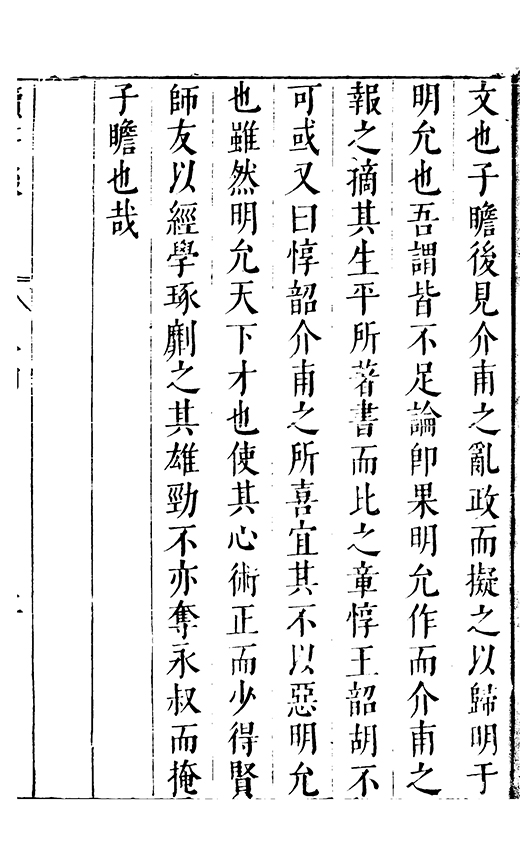 文也子瞻後見介甫之亂政而擬之以歸明于
明允也吾謂皆不足論卽果明允作而介甫之
報之摘其生平所著書而比之章惇王韶胡不
可或又曰惇韶介甫之所喜宜其不以惡明允
也雖然明允天下才也使其心術正而少得賢
師友以經學琢劘之其雄勁不亦奪永叔而掩
子瞻也哉